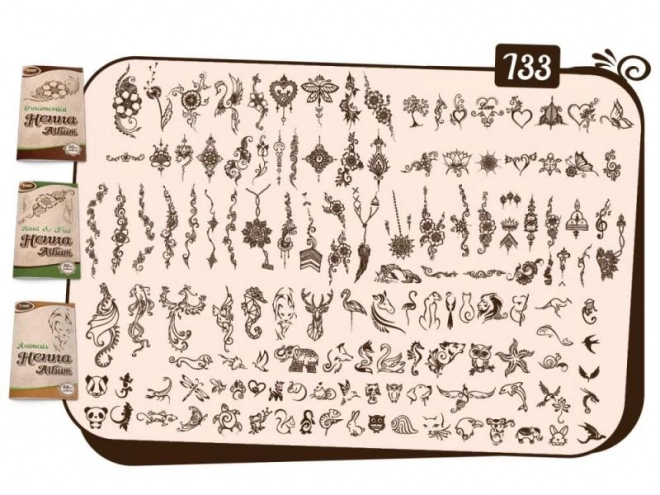 733
Ornamental
Henna
Album
Hand & Feet
Henna
Album
Animals
Henna
Album